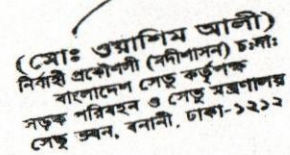 (মোঃ ওয়াশিম আলী)
নির্বাহী প্রকৌশলী (নদীশাসন) চঃদাঃ
বাংলাদেশ সেতু কর্তৃপক্ষ
সড়ক পরিবহন ও সেতু মন্ত্রণালয়
সেতু ভবন, বনানী, ঢাকা-১২১২